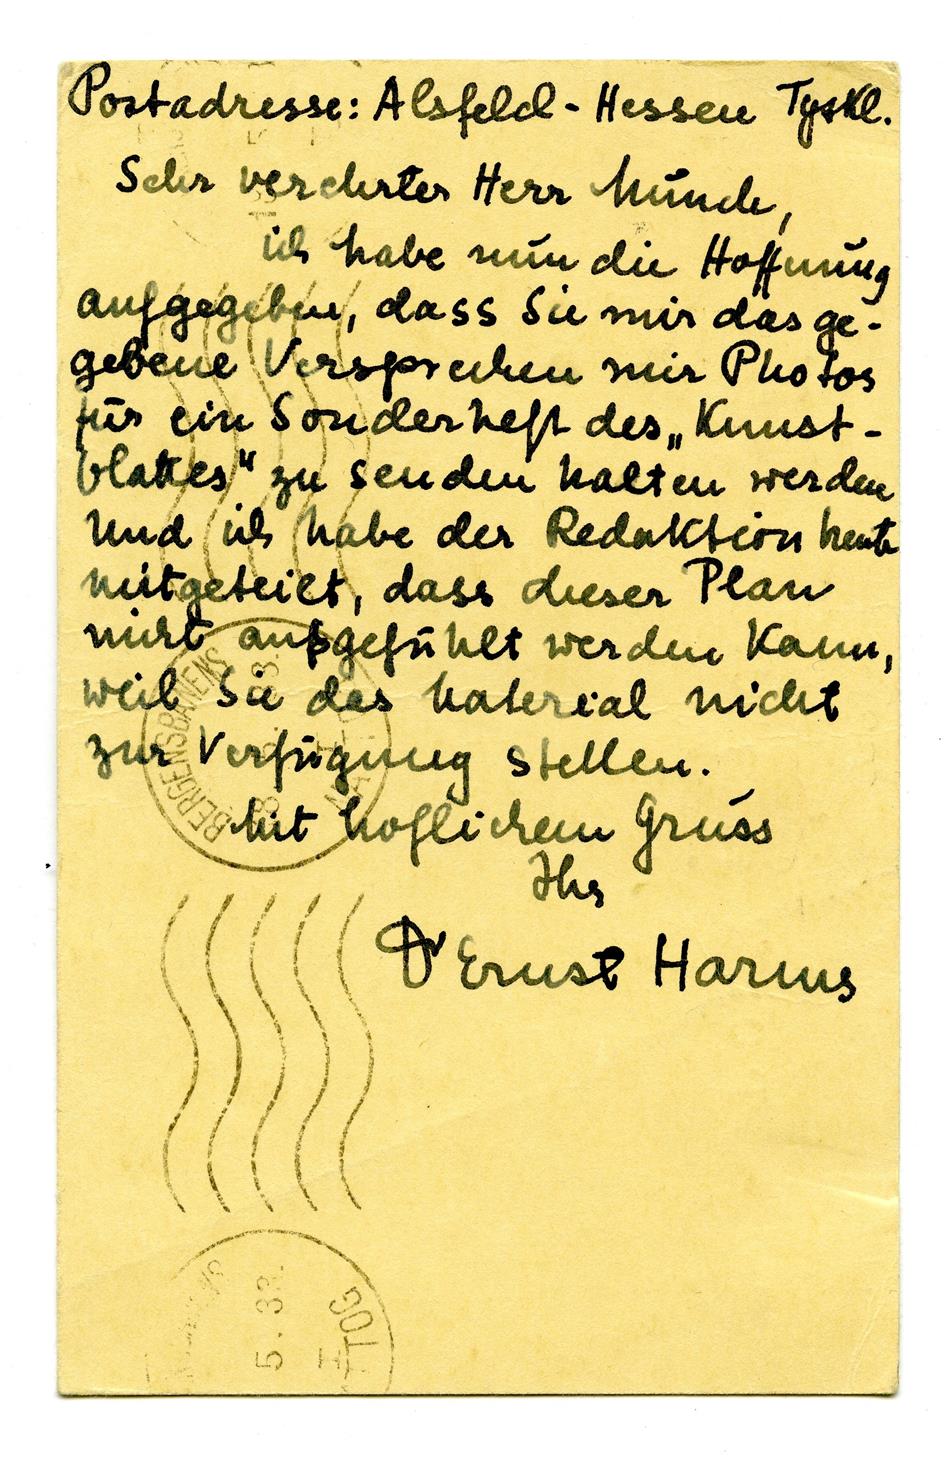 Postadresse: Alsfeld - Hessen Tyskl.
Sehr verehrter Herr Munch,
ich habe nun die Hoffnung
aufgegeben, dass Sie mir das ge-
gebene Versprechen mir Photos
für ein Sonderheft des „Kunst-
blattes“ zu senden halten werden
und ich habe der Redaktion heute
mitgeteilt, dass dieser Plan
nicht ausgefühlt werden kann,
weil Sie das Material nicht
zur Verfügung stellen.
Mit höflichem Gruss
Ihr
Dr Ernst Harms
BERGENSBANENS
5. 33.
TTOG